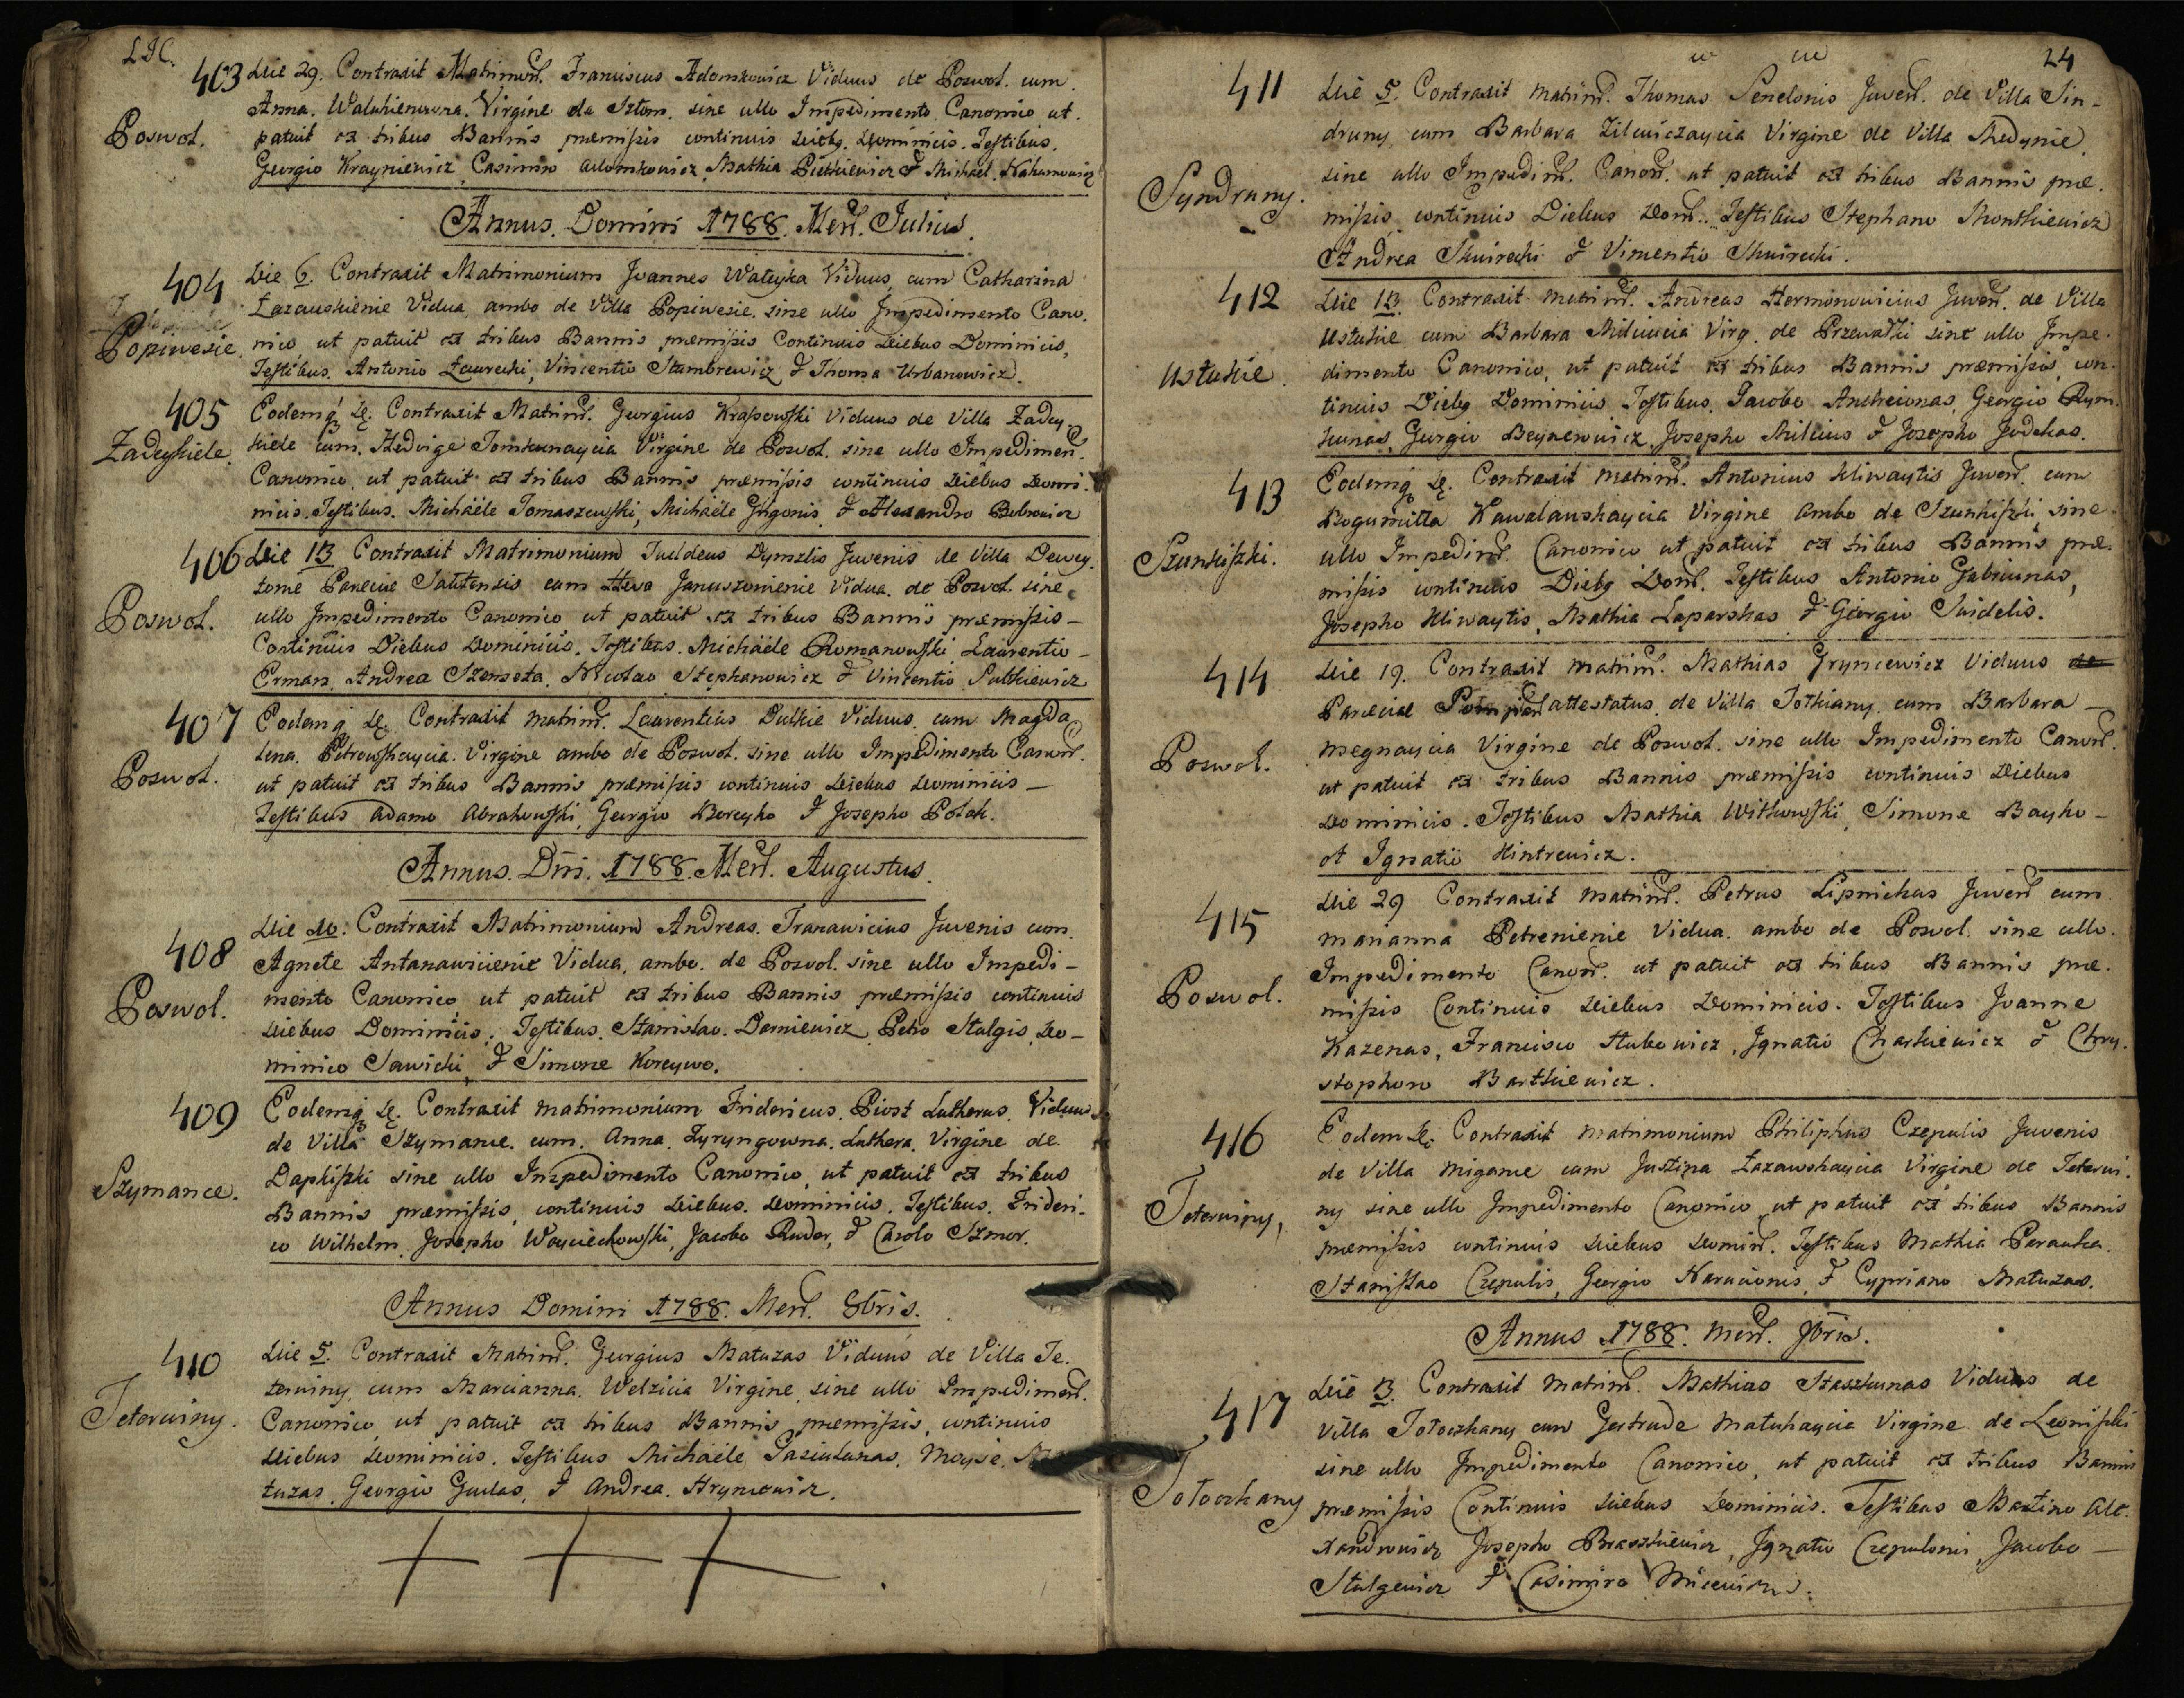 LIC.
403 Die 29. Contraxit Matrimon. Franciscus Adomkowicz Viduus de Poswol. cum
Anna. Virgine de sine ullo Impedimento Canonico ut
Poswol.
patuit ex tribus Bannis præmissis continuis Diebq. Dominicis. Testibus.
Georgio Krayniewicz, Casimiro Adomkowicz, Mathia Pietkiewicz & Michael.
Annus. Domini 1788. Men. Julius.
404 Die 6. Contraxit Matrimonium Joannes Wateyka Viduus, cum Catharina
Łazauskienie Vidua, ambo de Villa Popiwesie. sine ullo Impedimento Cano.
Popiwesie.
nico, ut patuit ex tribus Bannis, præmissis Continuis Diebus Dominicis,
Testibus. Antonio Łaurecki, Vincentio Stambrewicz & Thoma Urbanowicz.
405 Eodemq. De. Contraxit Matrim. Georgius Krasowski Viduus de Villa Zadey-
Zadeykiele.
kiele cum. Hedvige Tomkunaycia Virgine de Poswol. sine ullo Impedimen.
Canonico, ut patuit ex tribus Bannis præmissis continuis Diebus Domi.
nicis. Testibus. Michäele Tomaszewski, Michäele Grigonis & Alexandro Bobrowicz
406 Die 13 Contraxit Matrimonium Tadeus Dymszlis Juvenis de Villa Dewey.
tome Parœciæ Salatensis cum Heva Januszonienie Vidua. de Poswol. sine
Poswol.
ullo Impedimento Canonico ut patuit ex tribus Bannis præmissis -
Continuis Diebus Dominicis. Testibus. Michäele Romanowski, Laurentio -
Erman, Andrea Szemeta, Nicolao Stephanowicz & Vincentio Putkiewicz
407 Eodemq. De. Contraxit matrim. Laurentius Dulkie Viduus, cum Magda
lena. Petrowskaycia. Virgine ambo de Poswol. sine ullo Impedimento Canon.
Poswol.
ut patuit ex tribus Bannis præmissis continuis Diebus Dominicis -
Testibus Adamo Abrahowski, Georgio Boreyko & Josepho Polak.
Annus. Dni. 1788. Men. Augustus.
Die 10. Contraxit Matrimonium Andreas. Tranawicius Juvenis cum.
408 Agnete Antanawiczienie Vidua, ambo. de Poswol. sine ullo Impedi-
Poswol.
mento Canonico, ut patuit ex tribus Bannis præmissis continuis
Diebus Dominicis. Testibus. Stanislao. Daniewicz, Petro Stulgis, Do-
minico Sawicki, & Simone Koreywo.
409 Eodemq. De. Contraxit matrimonium Fridericus. Piost Lutherus. Viduus
de Villa Szymance. cum. Anna. Zyryngowna. Luthera. Virgine de
Szymance.
Łapkiszki sine ullo Impedimento Canonico, ut patuit ex tribus
Bannis præmissis, continuis Diebus. Dominicis. Testibus. Frideri-
co Wilhelm, Josepho Woyciechowski, Jacobo Ruder, & Carolo Szmor.
Annus Domini 1788. Men. 8bris.
410 Die 5. Contraxit Matrim. Georgius Matuzas Viduus de Villa Te-
terwiny, cum Marcianna. Welzicia Virgine, sine ullo Impediment.
Teterwiny.
Canonico, ut patuit ex tribus Bannis, præmissis, continuis
Diebus Dominicis. Testibus Michäele Pasiukunas, Moyse.
tuzas, Georgio Gudas, & Andrea. Hrynowicz.
24
411 Die 5. Contraxit matrim. Thomas Senelonis Juven. de Villa Sin-
druny, cum Barbara Zilewiczaycia Virgine de Villa Medynie
Syndruny.
sine ullo Impedim. Canon. ut patuit ex tribus Bannis præ.
missis, continuis Diebus Dom. Testibus Stephano Montkiewicz
Andrea Skuirecki & Vincentio Skuirecki.
412 Die 13. Contraxit matrim. Andreas Hermonowicius Juven. de Villa
Ustukie cum Barbara Milciucia Virg. de Przewałki sine ullo Impe-
Ustukie.
dimento Canonico, ut patuit ex tribus Bannis præmissis, con-
tinuis Diebq Dominicis, Testibus, Jacobo Andreionas, Georgio Rym-
kunas, Georgio Beynerowicz, Josepho Milcius & Josepho Judekas.
413 Eodemq. De. Contraxit matrim. Antonius Kliwaytis Juven. cum
Bogumilla Kawalauskaycia Virgine Ambo de Szunkiszki, sine
Szunkiszki.
ullo Impedim. Canonico ut patuit ex tribus Bannis præ-
missis continuis Diebq Dom. Testibus Antonio Gabriunas,
Josepho Kliwaytis, Mathia Laparskas & Georgio Suidelis.
414 Die 19. Contraxit matrim. Mathias Gryncewicz Viduus de
Parœciæ Pompen attestatus. de Villa Totkiany, cum Barbara -
Megnaycia Virgine de Poswol. sine ullo Impedimento Canon.
Poswol.
ut patuit ex tribus Bannis præmissis continuis Diebus
Dominicis. Testibus Mathia Witkowski, Simone Bayko -
et Ignatio Hintrewicz.
Die 29 Contraxit matrim. Petrus Lipnickas Juven cum
415 Marianna Petrenienie Vidua. ambo de Poswol. sine ullo.
Impedimento Canon. ut patuit ex tribus Bannis præ-
Poswol.
missis Continuis Diebus Dominicis. Testibus Joanne
Kazenas, Francisco Stubowicz, Ignatio Charkiewicz & Chry.
stophoro Bartkiewicz.
416 Eodem De. Contraxit matrimonium Philiphus Czepulis Juvenis
de Villa Migance cum Justina Łazawskaycia Virgine de Teterwi.
Teterwiny,
ny sine ullo Impedimento Canonico, ut patuit ex tribus Bannis
præmissis continuis Diebus Domin. Testibus Mathia Parauka.
Stanislao Czepulis, Georgio Naruionis, & Cypriano Matuzas.
Annus 1788. Men. 9bris.
417 Die 3. Contraxit matrim. Mathias Staszkunas Viduus de
Villa Totoczkany cum Gertrude Matukaycia Virgine de Leoniszki
sine ullo Impedimento Canonico, ut patuit ex tribus Bannis
Totoczkany
præmissis Continuis Diebus Dominicis. Testibus Martino Ale-
xandrowicz Josepho Braszkiewicz, Ignatio Czepulonis, Jacobo -
Stulgewicz & Casimiro